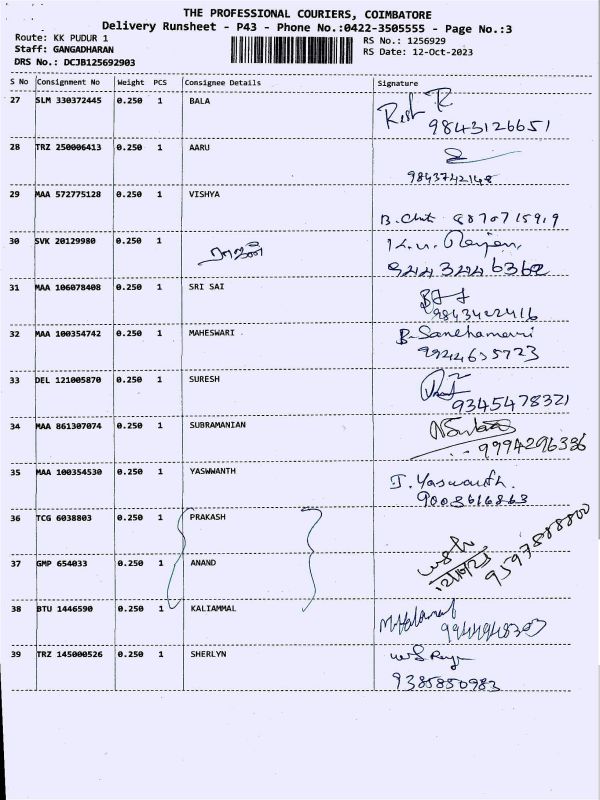 THE PROFESSIONAL COURIERS, COIMBATORE
Delivery Runsheet - P43 - Phone No.:0422-3505555 - Page No.:3
Route: KK PUDUR 1
RS No.: 1256929
Staff: GANGADHARAN
RS Date: 12-Oct-2023
DRS No.: DCJB125692903
S No Consignment No Weight PCS Consignee Details Signature
27 SLM 330372445 0.250 1 BALA
9843126651
28 TRZ 250006413 0.250 1 AARU
9843742148
29 MAA 572775128 0.250 1 VISHYA
8870715919
30 SVK 20129980 0.250 1
9443246362
31 MAA 106078408 0.250 1 SRI SAI
9843422416
32 MAA 100354742 0.250 1 MAHESWARI
9944635723
33 DEL 121005870 0.250 1 SURESH
9345478321
34 MAA 861307074 0.250 1 SUBRAMANIAN
9994296336
35 MAA 100354530 0.250 1 YASWWANTH
J. Yaswanth.
9003616863
36 TCG 6038803 0.250 1 PRAKASH
37 GMP 654033 0.250 1 ANAND
12/10/23 9597888800
38 BTU 1446590 0.250 1 KALIAMMAL
9944948303
39 TRZ 145000526 0.250 1 SHERLYN
9385850983